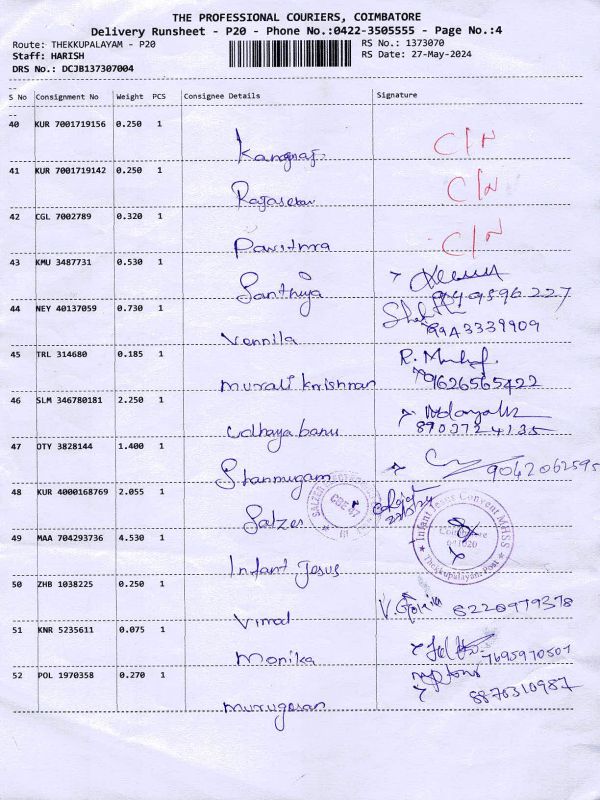 THE PROFESSIONAL COURIERS, COIMBATORE
Delivery Runsheet - P20 - Phone No.:0422-3505555 - Page No.:4
Route: THEKKUPALAYAM - P20 RS No.: 1373070
Staff: HARISH RS Date: 27-May-2024
DRS No.: DCJB137307004
S No Consignment No Weight PCS Consignee Details Signature
40 KUR 7001719156 0.250 1
Kangaraj C/N
41 KUR 7001719142 0.250 1
Rajasekar C/N
42 CGL 7002789 0.320 1
Pavithra C/N
43 KMU 3487731 0.530 1
Santhiya
44 NEY 40137059 0.730 1
Vennila 9943339909
45 TRL 314680 0.185 1
Murali krishnan 9626565422
46 SLM 346780181 2.250 1
Udhaya banu 8903724135
47 OTY 3828144 1.400 1
Shanmugam 9042062595
48 KUR 4000168769 2.055 1
Salzer CBE 47
49 MAA 704293736 4.530 1
Infant Jesus Infant Jesus Convent MHSS Thekkupalayam Post
50 ZHB 1038225 0.250 1
Vimal 8220979378
51 KNR 5235611 0.075 1
Monika 7695970507
52 POL 1970358 0.270 1
Murugesan 8870310987